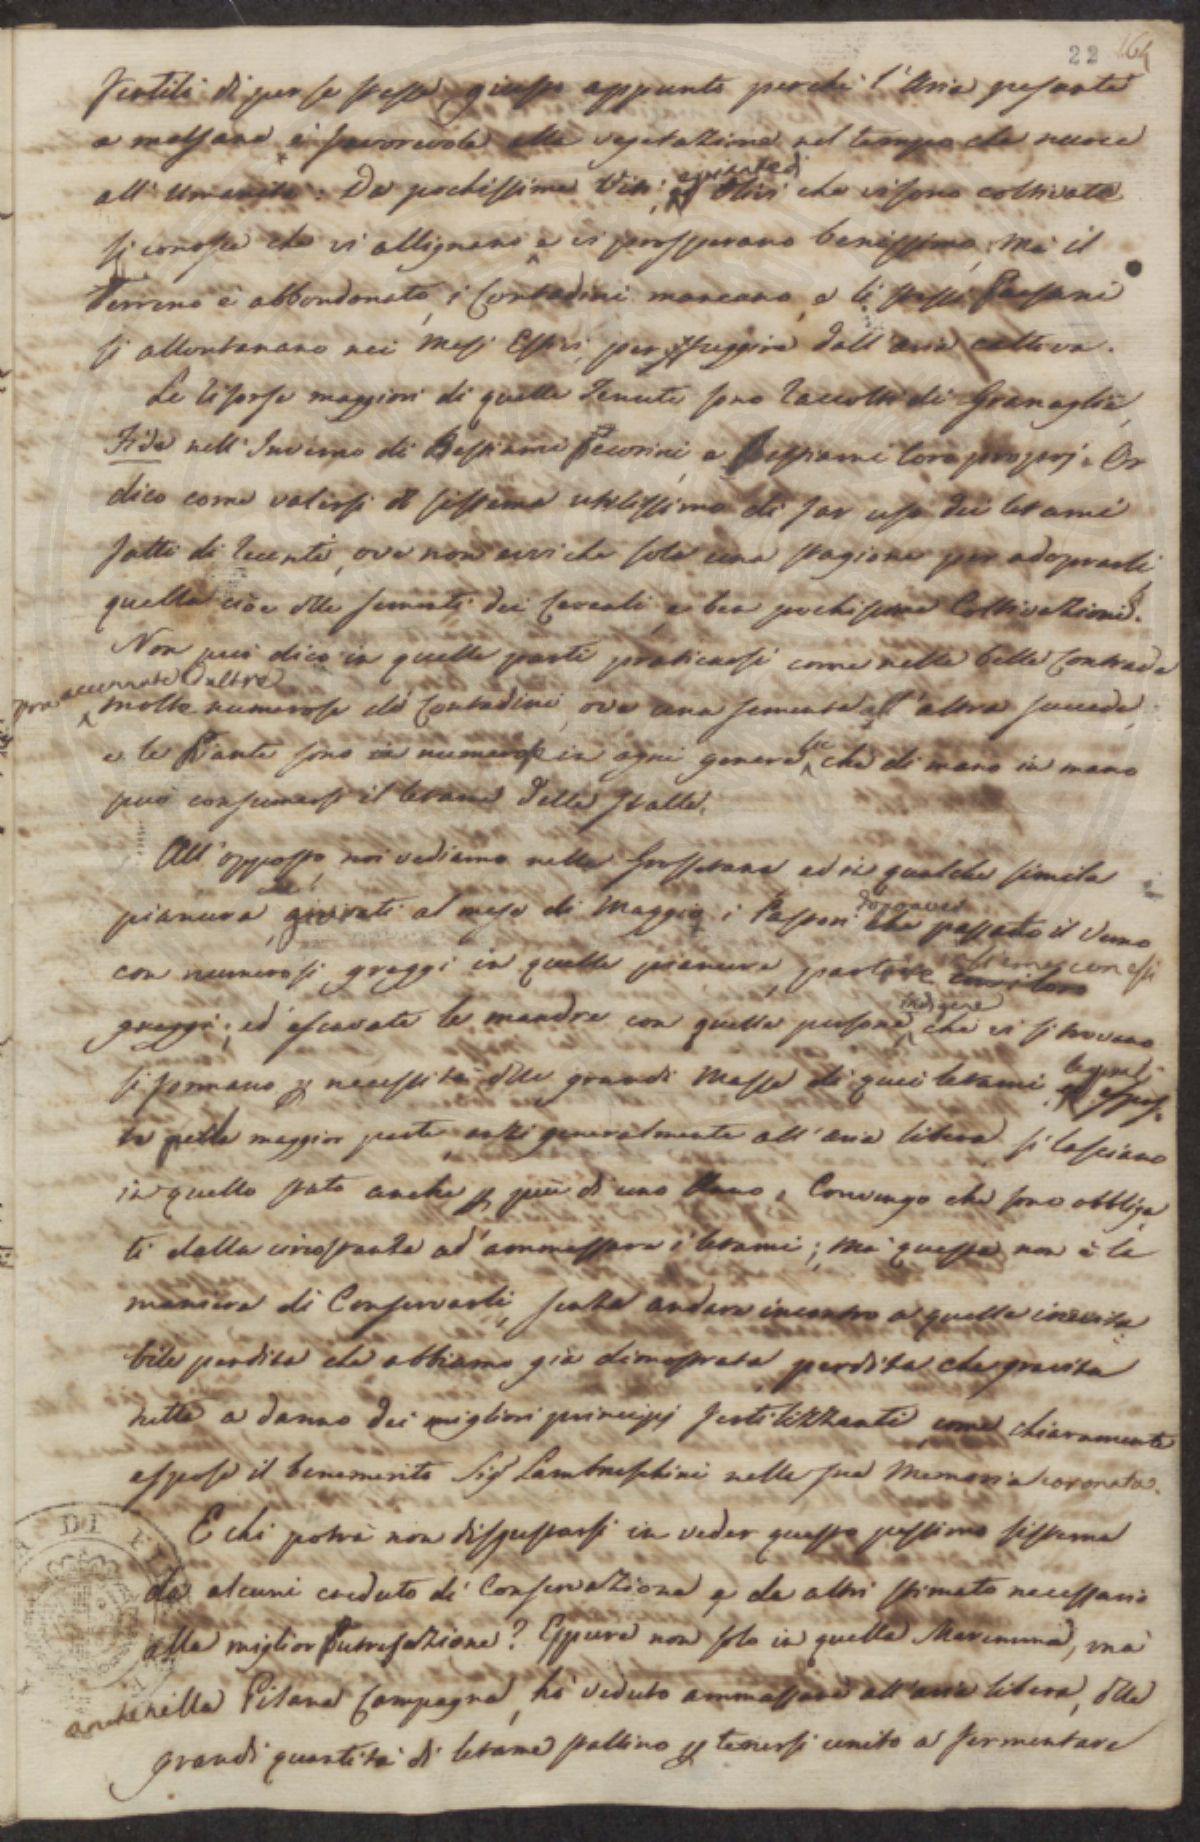 22 164
fertili di per se stesse giusto appunto perchè l'Aria pesante
e malsana è favorevole alla vegetazione nel tempo che nuoce
all'Umanità: Da pochissime Viti, ed Olivi che vi sono coltivate
si conosce che vi allignano e vi prosperano benissimo, Ma il
Terreno è abbondonato, i Contadini mancano, e li stessi Paesani
si allontanano nei Mesi Estivi per sfuggire dall'aria cattiva.
Le risorse maggiori di quelle Tenute sono raccolti di Granaglie,
Fida nell'Inverno di Bestiami Pecorini, e Bestiami loro proprj. Or
dico come valersi di sistema utilissimo di far uso dei letami
fatti di recente, ove non avvi che sola una stagione per adoprarli
quella cioè delle sementi dei Cereali, e ben pochissime Coltivazioni?
Non può dico in quelle parti praticarsi come nelle belle Contrade
accurate d'altre
molte numerose di Contadini, ove una sementa all'altra succede,
e le Piante sono in numero e in ogni genere che di mano in mano
può consumarsi il letame delle stalle.
All'opposto noi vediamo nella Grossetana ed in qualche simile
pianura, giunti al mese di Maggio, i Pastori dopo aver passato il Verno
con numerosi greggi in quelle pianure, partire insieme con essi
greggi; ed escavate le mandre con quelle persone indigene che vi si trovano
si formano per necessità delle grandi Masse di quei letami, e esposte
la maggior parte, anzi generalmente all'aria libera si lasciano
in quello stato anche per più di uno Anno. Convengo che sono obbliga
ti dalla circostanza ad ammassare i letami; Ma questa non è la
maniera di Conservarli, senza andare incontro a quella inevita
bile perdita che abbiamo già dimostrata perdita che gravita
tutta a danno dei migliori principj fertilizzanti come chiaramente
espose il benemerito Sig.r Lambruschini nella sua Memoria coronata.
E chi potrà non disgustarsi in veder questo pessimo sistema
da alcuni creduto di Conservazione e da altri stimato necessario
alla miglior Putrefazione? Eppure non solo in quella Maremma, ma
anche nella Pisana Campagna, hò veduto ammassare all'aria libera, delle
grandi quantità di letame stallino per tenersi unito a fermentare